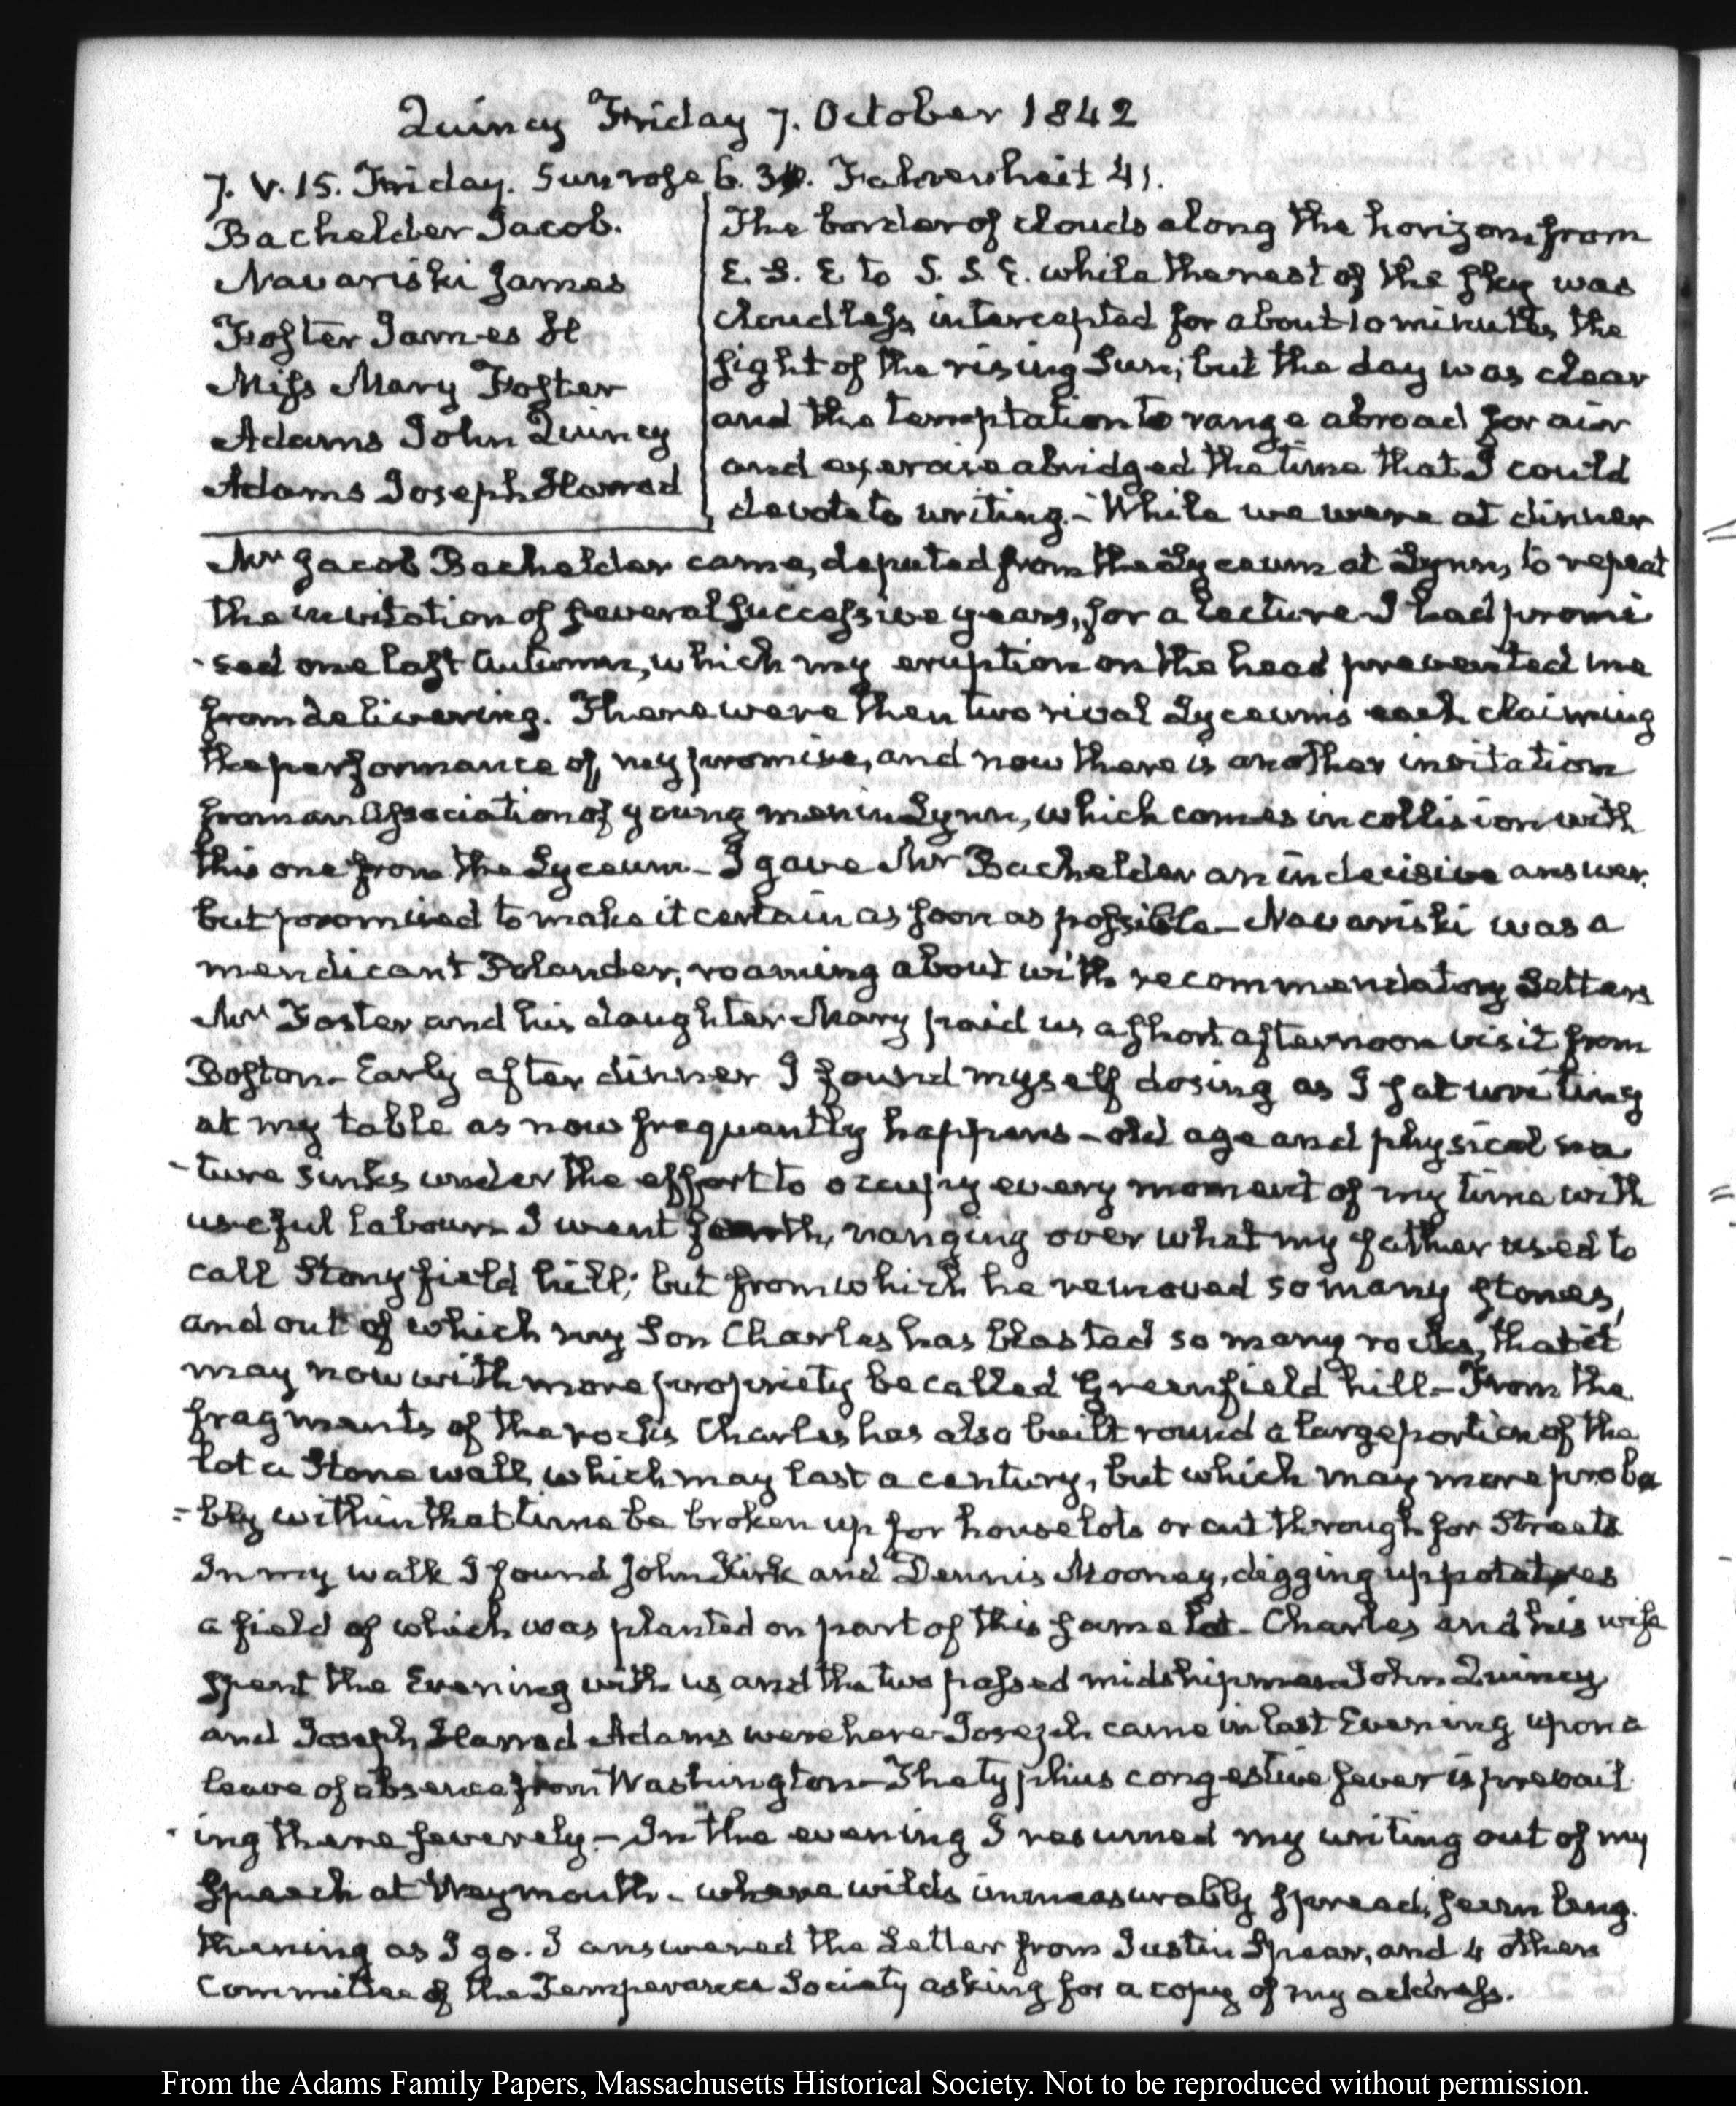 Quincy Friday 7. October 1842
7. V. 15. Friday. Sun rose 6. Fahrenheit 41.
Bachelder Jacob.
Navariski James
Foster James H
Miss Mary Foster
Adams John Quincy
Adams Joseph Harrod
The border of clouds along the horizon from
E. S. E to S. S. E. while the rest of the sky was
cloudless, intercepted for about 10 minutes, the
sight of the rising Sun; but the day was clear
and the temptation to range abroad for air
and exercise abridged the time that I could
devote to writing.- While we were at dinner
Mr Jacob Bachelder came, deputed from the Lyceum at Lynn, to repeat
the invitation of several successive years, for a Lecture I had promi
-sed one last Autumn, which my eruption on the head prevented me
from delivering. There were then two rival Lyceums each claiming
the performance of, my promise, and now there is another invitation
from an Association of young men in Lynn, which comes in collision with
this one from the Lyceum- I gave Mr Bachelder an indecisive answer,
but promised to make it certain as soon as possible- Navariski was a
mendicant Polander, roaming about with recommendatory Letters
Mr Foster and his daughter Mary paid us a short afternoon visit from
Boston- Early after dinner I found myself dosing as I sat writing
at my table as now frequently happens- old age and physical na
-ture sinks under the effort to occupy every moment of my time with
useful labour- I went forth, ranging over what my father used to
call Stonyfield hill; but from which he removed so many stones,
and out of which my Son Charles has blasted so many rocks, that it
may now with more propriety be called Greenfield hill- From the
fragments of the rocks Charles has also built round a large portion of the
lot a Stone wall, which may last a century, but which may more proba
=bly within that time be broken up for house lots or cut through for Streets
In my walk I found John Kirk and Dennis Mooney, digging up potatoes
a field of which was planted on part of this same lot- Charles and his wife
spent the Evening with us, and the two passed midshipmen John Quincy
and Joseph Harrod Adams were here- Joseph came in last Evening upon a
leave of absence from Washington- The typhus congestive fever is prevail
-ing there severely.- In the evening I resumed my writing out of my
Speech at Weymouth- where wilds immeasurably spread, seem leng.
thening as I go. I answered the Letter from Justin Spear, and 4 others
Committee of the Temperance Society asking for a copy of my address.
From the Adams Family Papers, Massachusetts Historical Society. Not to be reproduced without permission.